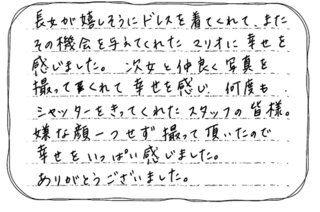 長女が嬉しそうにドレスを着てくれて、また
その機会を与えてくれたマリオに幸せを
感じました。 次女と仲良く写真を
撮って来くれて幸せを感じ、何度も
シャッターをきってくれたスタッフの皆様。
嫌な顔一つせず撮って頂いたので
幸せをいっぱい感じました。
ありがとうございました。